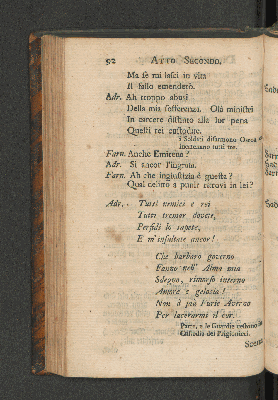 92 ATTO SECONDO.
Ma se mi lasci in vita
Il fallo emenderò.
Adr. Ah troppo abusi
Della mia sofferenza. Olà ministri
In carcere distinto alla lor pena
Questi rei custodite.
i Soldati disarmono Osroa
tutti tre.
Farn. Anche Emirena?
Adr. Sì ancor l'ingrata.
Farn. Ah che ingiustizia è questa?
Qual delitto a punir ritrovi in lei?
Adr. Tutti nemici e rei
Tutti tremar dovete,
Perfidi lo sapete,
E m'insultate ancor!
Che barbaro governo
Fanno dell' Alma mia
Sdegno, rimorso interno
Amore e gelosia!
Non à più Furie Averno
Per lacerarmi il cor.
Parte, e le Guardie restono in
Custodia dei Prigionieri.